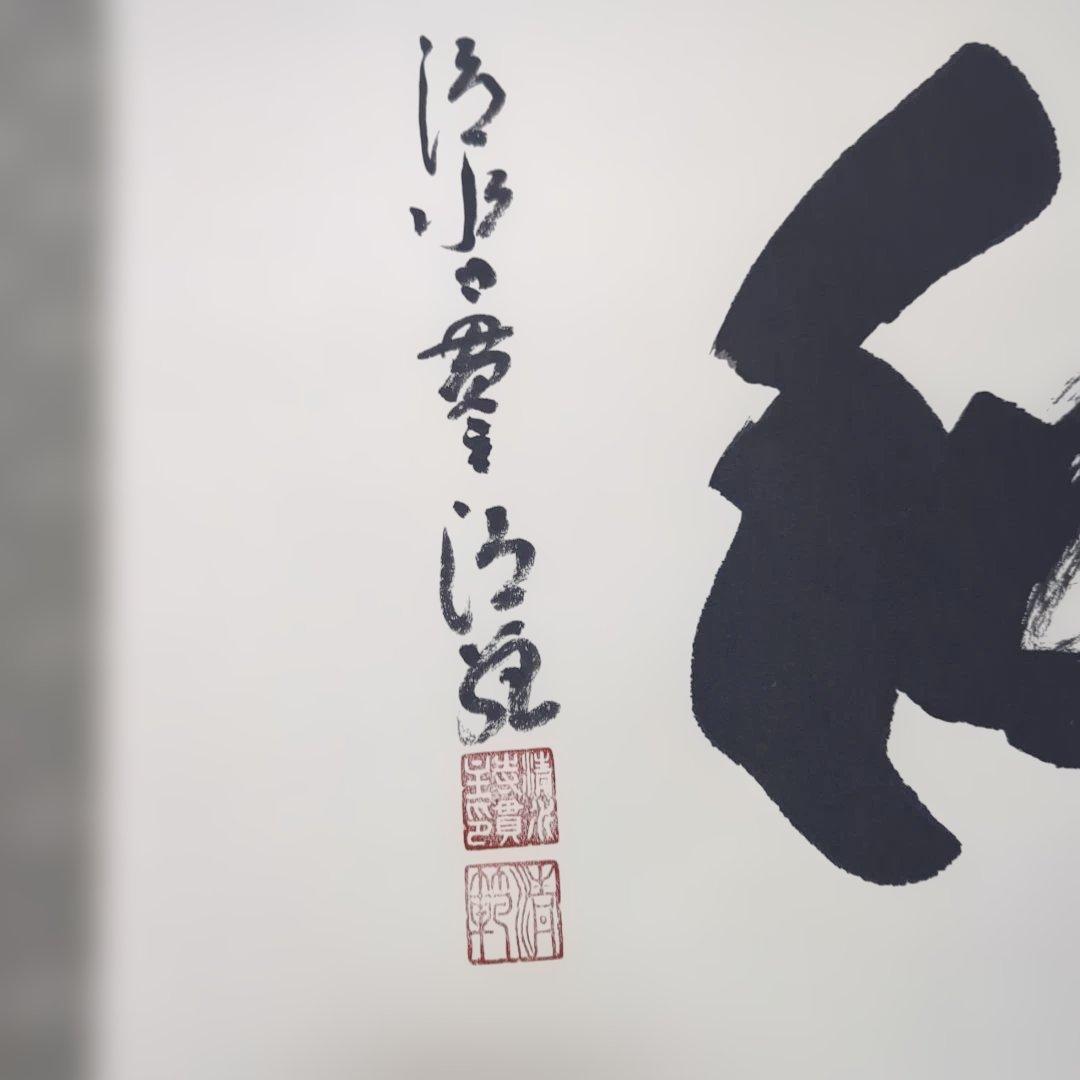 清水寺貫主 清範
清水寺貫主印
清範